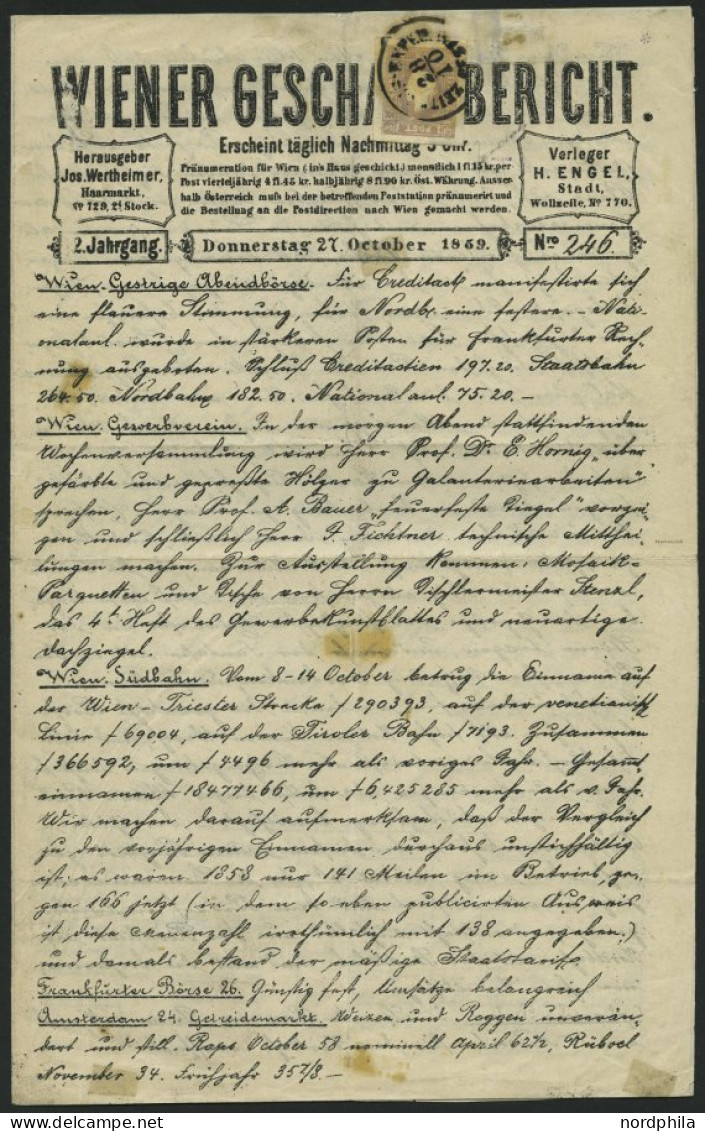 WIENER GESCHÄ BERICHT.
Erscheint täglich Nachmittag 5 Uhr.
Herausgeber
Jos. Wertheimer,
Haarmarkt,
No 729, 2t Stock.
Pränumeration für Wien (in's Haus geschickt) monatlich 1 fl 15 kr. per
Post vierteljährig 4 fl 45 kr. halbjährig 8 fl 90 kr. Öst. Währung. Ausser-
halb Österreich muſs bei der betreffenden Poststation pränumerirt und
die Bestellung an die Postdirection nach Wien gemacht werden.
Verleger
H. ENGEL,
Stadt,
Wollzeile, No 770.
2. Jahrgang.
Donnerstag 27. October 1859.
Nro 246.
Wien. Gestrige Abendbörse. Für Creditact manifestirte sich
eine flauere Stimmung, für Nordb. eine festere. – Nati-
onalanl. wurde in stärkeren Posten für Frankfurter Rech-
nung ausgeboten. Schluß Creditactien 197.20. Staatsbahn
264.50. Nordbahn 182.50. Nationalanl. 75.20. –
Wien. Gewerbverein. In der morgen Abend stattfindenden
Wochenversammlung wird Herr Prof. Dr. E. Hornig „über
gefärbte und gepreßte Hölzer zu Galanteriearbeiten"
sprechen, Herr Prof. A. Bauer „feuerfeste Ziegel" vorzei-
gen und schließlich Herr J. Fichtner technische Mitthei-
lungen machen. Zur Ausstellung kommen: Mosaik-
Parquetten und Tische von Herrn Tischlermeister Stenzl,
das 4t Heft des Gewerbekunstblattes und neuartige
Dachziegel.
Wien. Südbahn. Vom 8–14 October betrug die Einname auf
der Wien – Triester Strecke f 290393, auf der venetianisch
Linie f 69004, auf der Tiroler Bahn f 7193. Zusammen
f 366592, um f 4496 mehr als voriges Jahr. – Gesamt-
einnamen f 18477466, um f 6,425285 mehr als v. Jahr.
Wir machen darauf aufmerksam, daß der Vergleich
zu den vorjährigen Einnamen durchaus unstichhältig
ist; es waren 1858 nur 141 Meilen im Betrieb, ge-
gen 166 jetzt (in dem so eben publicirten Ausweis
ist diese Meilenzahl irrthümlich mit 138 angegeben.)
und damals bestand der mäßige Staatstarif.
Frankfurter Börse 26. Günstig fest, Umsätze belangreich
Amsterdam 24. Getreidemarkt. Weizen und Roggen unverän-
dert und still. Raps October 58 nominell April 62½, Rüböl
November 34. Frühjahr 35 7/8. –
nordphila